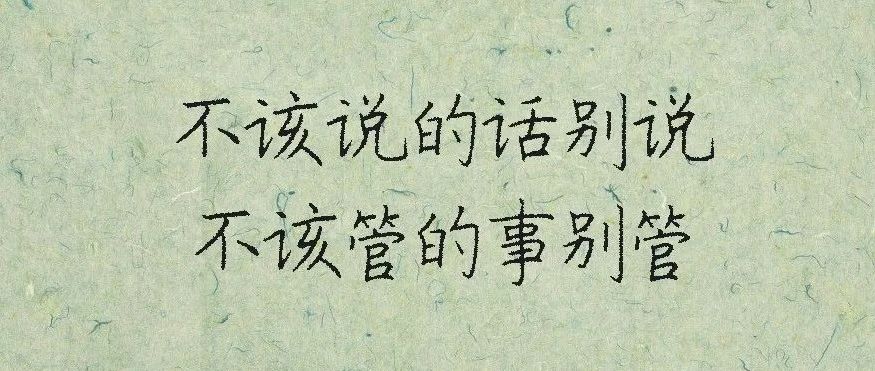 不该说的话别说
不该管的事别管